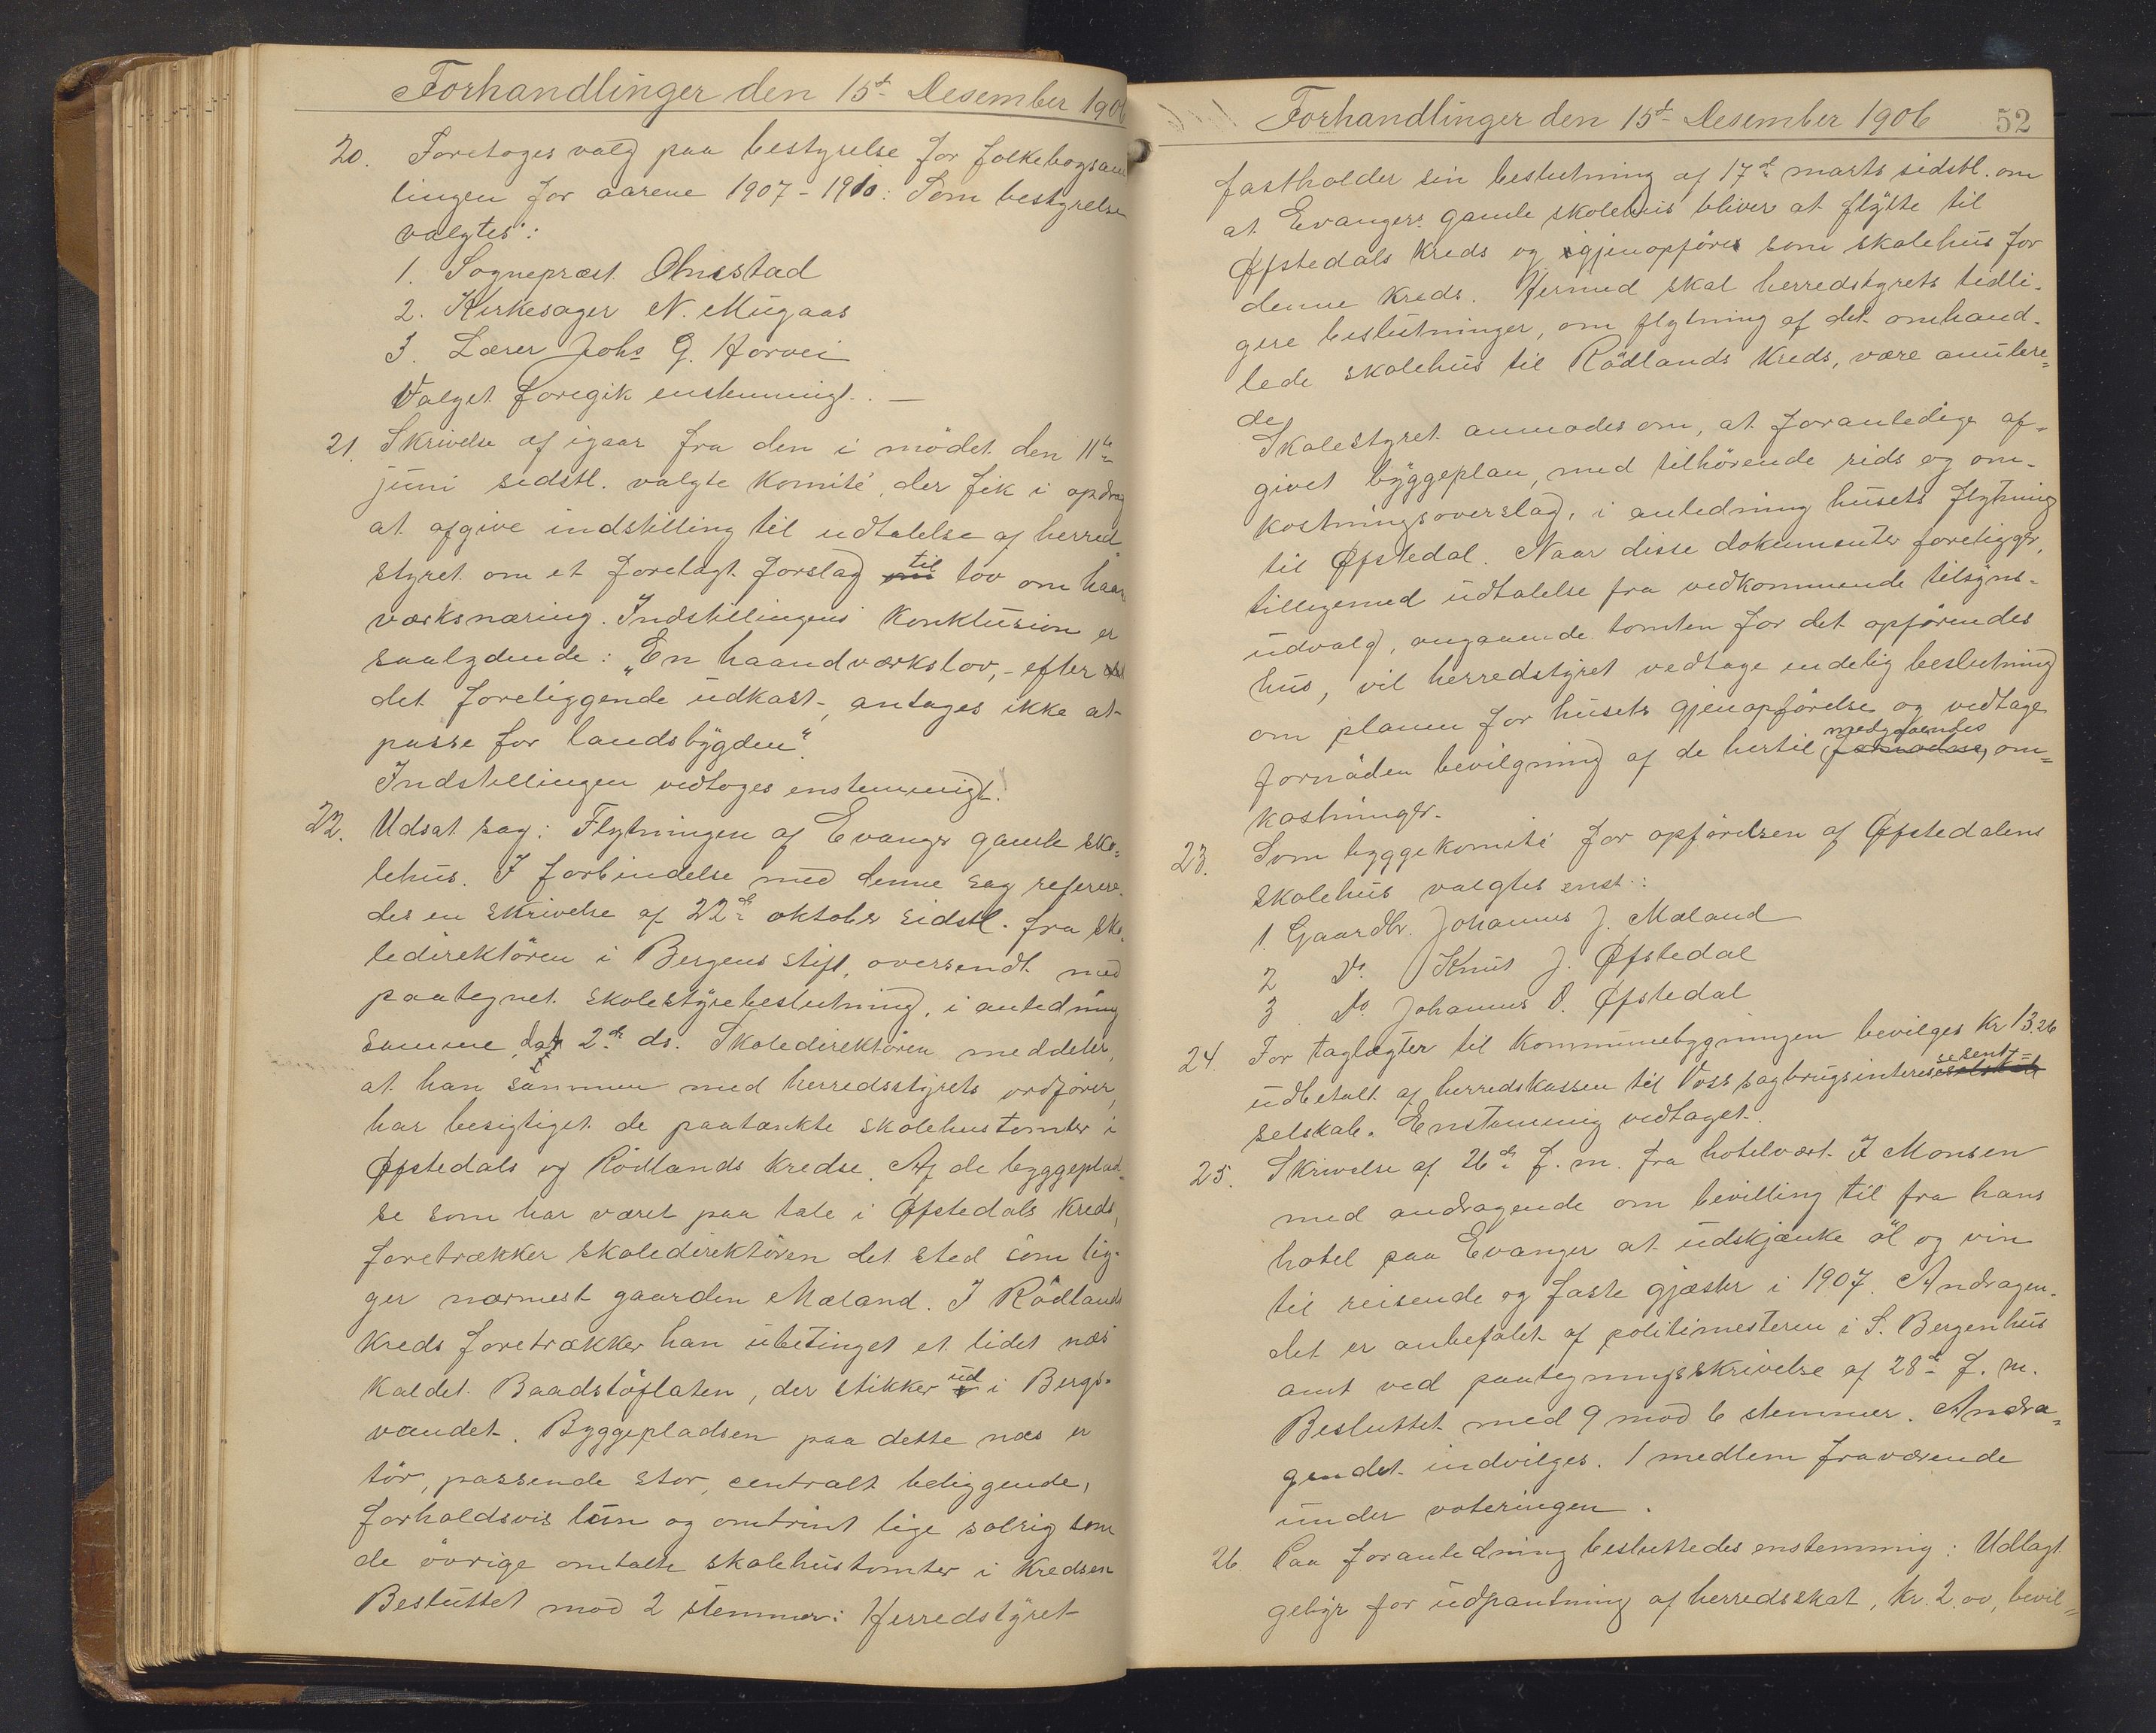 Forhandlinger den 15de Desember 1906
20. Foretoges valg paa bestyrelse for folkebogsam
lingen for aarene 1907-1910: Som bestyrelse
valgtes:
1. Sognepræst Olmstad
2. Kirkesager N. Mugaas
3. Lærer Johs G. Horvei
Valget foregik enstemmigt. —
21. Skrivelse af igaar fra den i mödet den 11te
juni sidstl. valgte komité, der fik i opdrag
at afgive indstilling til udtalelse af herred
styret om et forelagt forslag til lov om haand
værksnæring. Indstillingens konklusion er
saalydende: "En haandværkslov, - efter
det foreliggende udkast-, antages ikke at
passe for landsbygden".
Indstillingen vedtoges enstemmigt.
22. Udsat sag: Flytningen af Evanger gamle sko-
lehus. I forbindelse med denne sag refere-
des en skrivelse af 22de oktober sidstl. fra sko-
ledirektören i Bergens stift, oversendt med
paategnet skolestyrebeslutning, i anledning
samme, dat 2de ds. Skoledirektören meddeler,
at han sammen med herredsstyrets ordförer,
har besigtiget de paatænkte skolehustomter i
Øfstedals og Rödlands kredse. Af de byggeplad-
se som har været paa tale i Øfstedals kreds,
foretrækker skoledirektören det sted som lig-
ger nærmest gaarden Mæland. I Rödlands
kreds foretrækker han ubetinget et lidet næs
kaldet Baadstöflaten, der stikker ud i Bergs-
vandet. Byggepladsen paa dette næs er
tör, passende stor, centralt beliggende,
forholdsvis lun og omtrint lige solrig som
de övrige omtalte skolehustomter i kredsen
Besluttet mod 2 stemmer: Herredstyret
Forhandlinger den 15de Desember 1906 52
fastholder sin beslutning af 17de marts sidstl. om
at Evangers gamle skolehus bliver at flytte til
Øfstedals kreds og igjenopføres som skolehus for
denne kreds. Hermed skal herredstyrets tidli-
gere beslutninger, om flytning af det omhand-
lede skolehus til Rödlands kreds, være anulere=
de
Skolestyret anmodes om, at foranledige af-
givet byggeplan, med tilhörende rids og om-
kostningsoverslag, i anledning husets flytning
til Øfstedal. Naar disse dokumenter foreligger,
tilligemed udtalelse fra vedkommende tilsyns-
udvalg, angaaende tomten for det opförendes
hus, vil herredstyret vedtage endelig beslutning
om planen for husets gjenopförelse og vedtage
fornöden bevilgning af de hertil medgaaendes om=
kostninger.
23. Som byggekomité for opförelsen af Øfstedalens
skolehus valgtes enst.:
1. Gaardbr. Johannes J. Mæland
2 Do. Knut J. Øfstedal
3 Do. Johannes O. Øfstedal
24. For taglægter til kommunebygningen bevilges kr 13.26
udbetalt af herredskassen til Voss sagbrugsinteresesent=
selskab. Enstemmig vedtaget.
25. Skrivelse af 26de f. m. fra hotelvært I Monsen
med andragende om bevilling til fra hans
hotel paa Evanger at udskjænke öl og vin
til reisende og faste gjæster i 1907. Andragen-
det er anbefalet af politimesteren i S. Bergenhus
amt ved paategningsskrivelse af 28de f. m.
Besluttet med 9 mod 6 stemmer. Andra=
gendet indvilges. 1 medlem fraværende
under voteringen.
26. Paa foranledning besluttedes enstemmig: Udlagt
gebyr for udpantning af herredsskat, kr. 2.00, bevil=